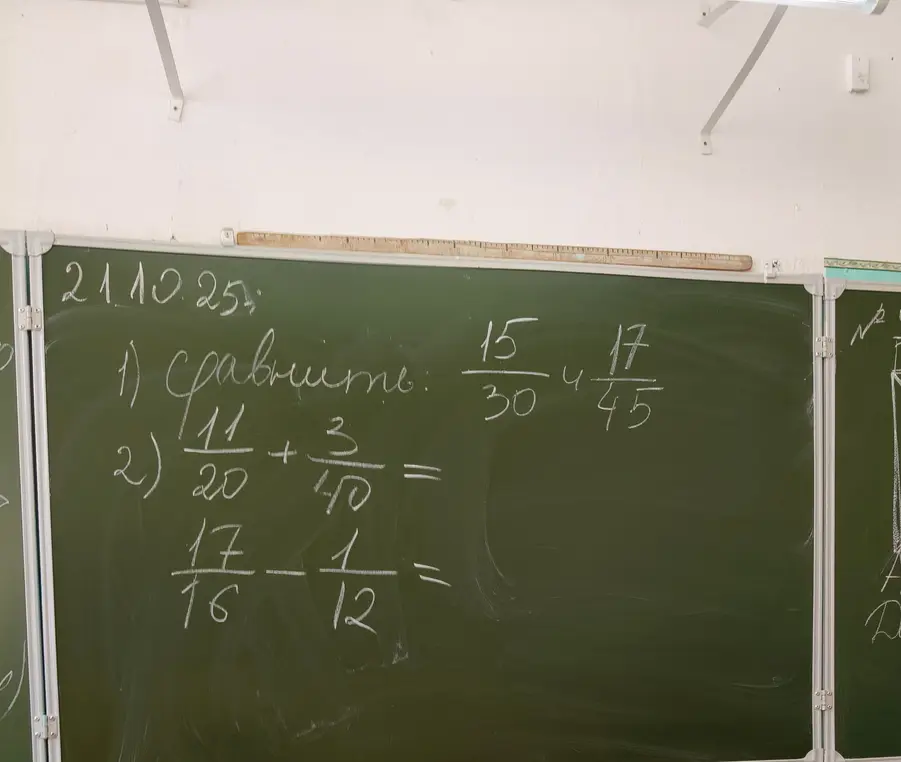 21.10.25г
1) Сравнить: 15/30 и 17/45
2) 11/20 + 3/40 =
17/16 - 1/12 =
№